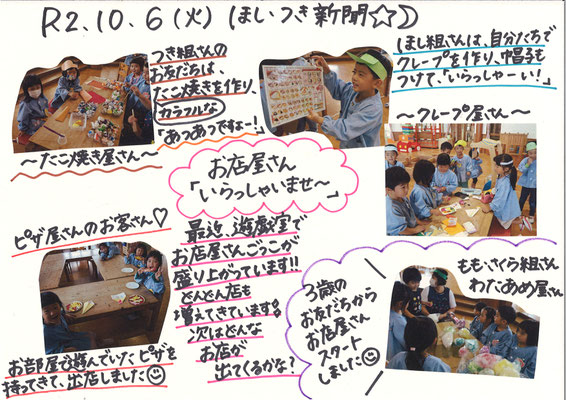 R2.10.6(火) ほし・つき新聞☆☽
つき組さんの
お友だちは、
たこ焼きを作り、
カラフルな
「あつあつですよー!」
〜たこ焼き屋さん〜
ほし組さんは、自分たちで
クレープを作り、帽子も
つけて、「いらっしゃーい!」
〜クレープ屋さん〜
お店屋さん
「いらっしゃいませ〜」
ピザ屋さんのお客さん♡
お部屋で遊んでいたピザを
持ってきて、出店しました☺
最近、遊戯室で
お店屋さんごっこが
盛り上がっています!!
どんどん店も
増えてきています!
次はどんな
お店が
出てくるかな?
3歳の
お友だちから
お店屋さん
スタート
しました☺
もも・さくら組さん
わたあめ屋さん